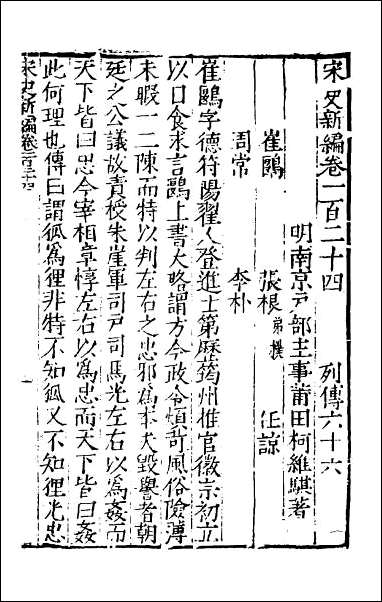 宋史新編卷一百二十四　　列傳六十六
明南京戶部主事莆田柯維騏著
崔鶠　張根弟樸　任諒
周常　李朴
崔鶠字德符陽翟人登進士第歷筠州推官徽宗初立
以日食求言鶠上書大略謂方今政令煩苛風俗險薄
未暇一二陳而特以判左右之忠邪爲本夫毀譽者朝
廷之公議故責授朱崖軍司戶司馬光左右以爲姦而
天下皆曰忠今宰相章惇左右以爲忠而天下皆曰姦
此何理也傳曰謂狐爲狸非特不知狐又不知狸光忠
宋史新編卷一百二十四　一